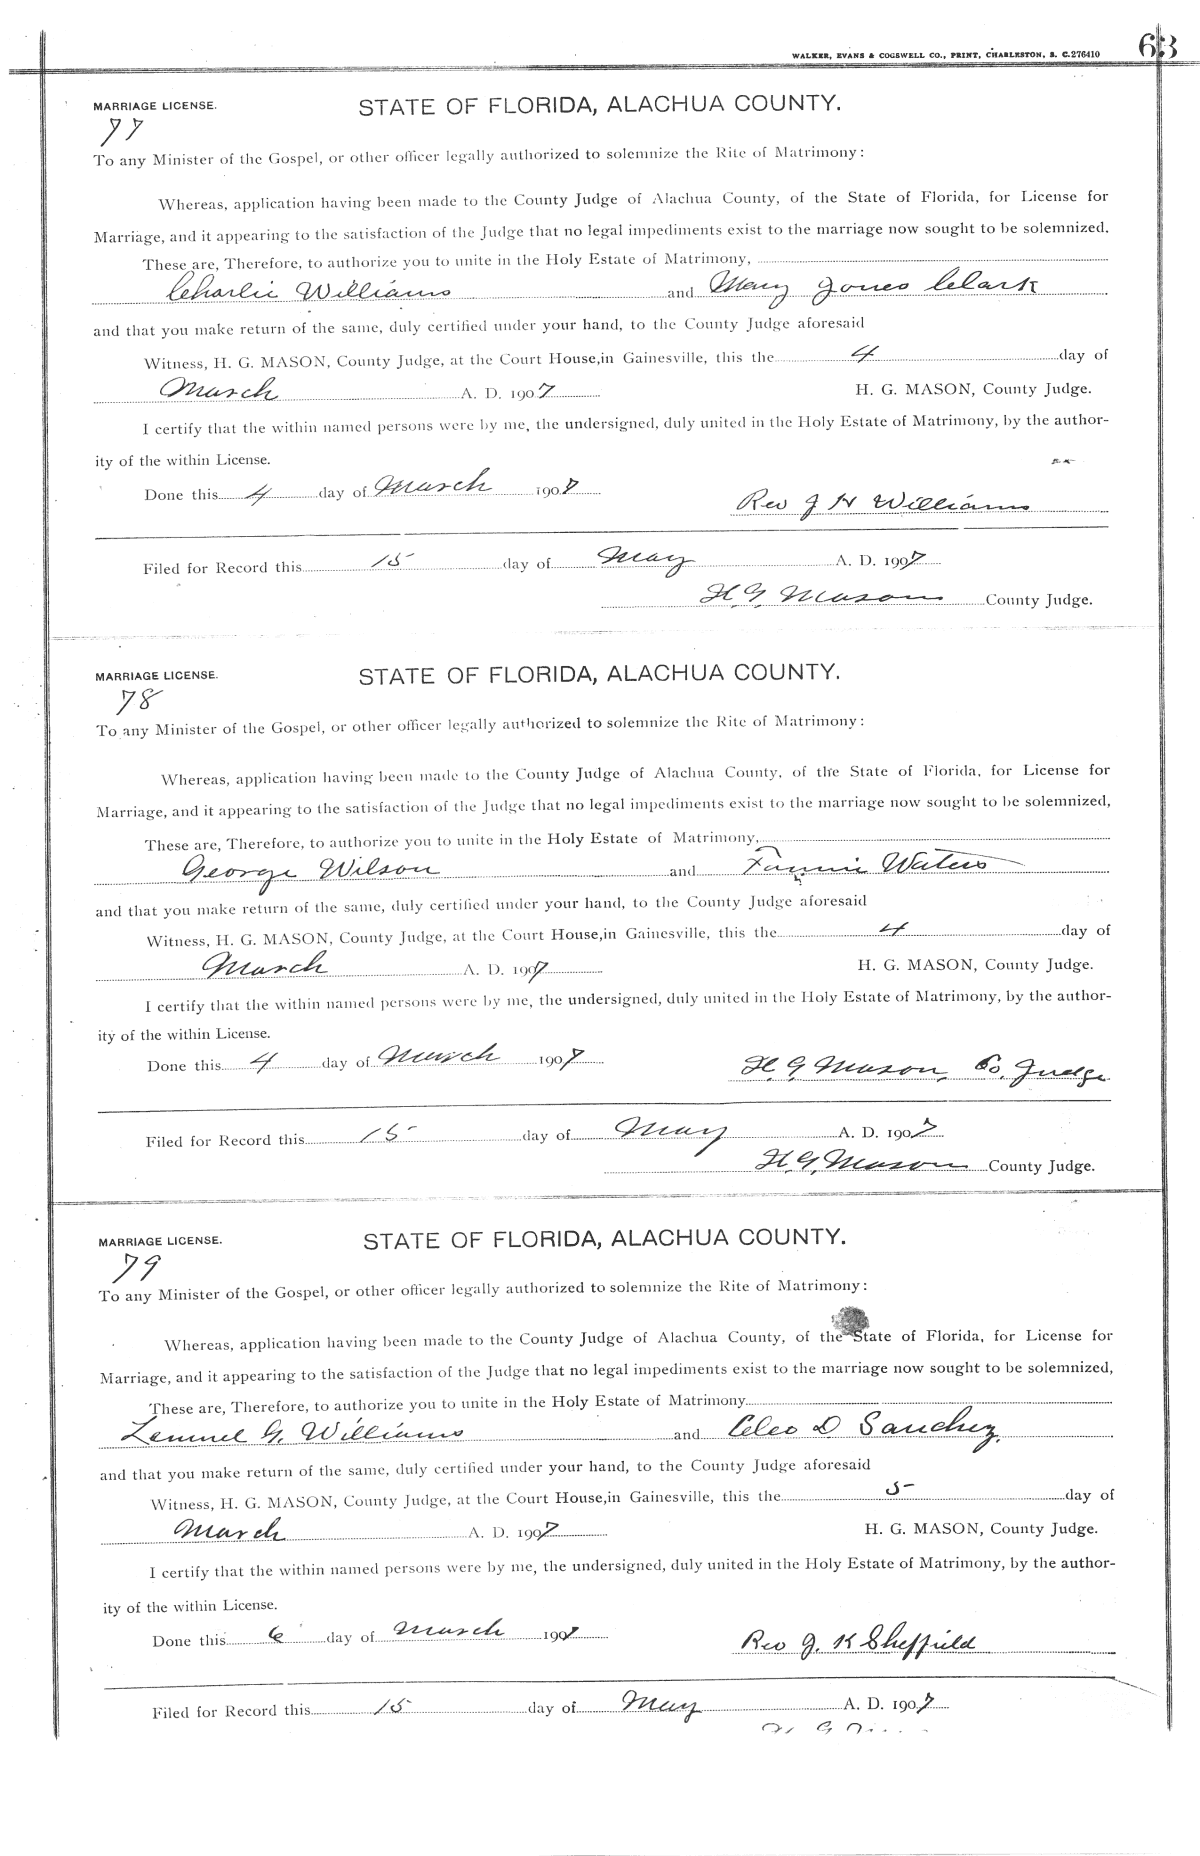 WALKER, EVANS & COGSWELL CO., PRINT, CHARLESTON, S. C. 276410 63
MARRIAGE LICENSE. STATE OF FLORIDA, ALACHUA COUNTY.
77
To any Minister of the Gospel, or other officer legally authorized to solemnize the Rite of Matrimony:
Whereas, application having been made to the County Judge of Alachua County, of the State of Florida, for License for
Marriage, and it appearing to the satisfaction of the Judge that no legal impediments exist to the marriage now sought to be solemnized.
These are, Therefore, to authorize you to unite in the Holy Estate of Matrimony,
Charlie Williams and Mary Jones Clark
and that you make return of the same, duly certified under your hand, to the County Judge aforesaid
Witness, H. G. MASON, County Judge, at the Court House, in Gainesville, this the 4 day of
March A. D. 1907 H. G. MASON, County Judge.
I certify that the within named persons were by me, the undersigned, duly united in the Holy Estate of Matrimony, by the author-
ity of the within License.
Done this 4 day of March 1907
Rev J H Williams
Filed for Record this 15 day of May A. D. 1907
H. G. Mason County Judge.
MARRIAGE LICENSE. STATE OF FLORIDA, ALACHUA COUNTY.
78
To any Minister of the Gospel, or other officer legally authorized to solemnize the Rite of Matrimony:
Whereas, application having been made to the County Judge of Alachua County, of the State of Florida, for License for
Marriage, and it appearing to the satisfaction of the Judge that no legal impediments exist to the marriage now sought to be solemnized,
These are, Therefore, to authorize you to unite in the Holy Estate of Matrimony,
George Wilson and Fannie Waters
and that you make return of the same, duly certified under your hand, to the County Judge aforesaid
Witness, H. G. MASON, County Judge, at the Court House, in Gainesville, this the 4 day of
March A. D. 1907 H. G. MASON, County Judge.
I certify that the within named persons were by me, the undersigned, duly united in the Holy Estate of Matrimony, by the author-
ity of the within License.
Done this 4 day of March 1907 H. G. Mason, Co. Judge
Filed for Record this 15 day of May A. D. 1907
H. G. Mason County Judge.
MARRIAGE LICENSE. STATE OF FLORIDA, ALACHUA COUNTY.
79
To any Minister of the Gospel, or other officer legally authorized to solemnize the Rite of Matrimony:
Whereas, application having been made to the County Judge of Alachua County, of the State of Florida, for License for
Marriage, and it appearing to the satisfaction of the Judge that no legal impediments exist to the marriage now sought to be solemnized,
These are, Therefore, to authorize you to unite in the Holy Estate of Matrimony
Lemuel G. Williams and Cleo D Sanchez,
and that you make return of the same, duly certified under your hand, to the County Judge aforesaid
Witness, H. G. MASON, County Judge, at the Court House, in Gainesville, this the 5 day of
March A. D. 1907 H. G. MASON, County Judge.
I certify that the within named persons were by me, the undersigned, duly united in the Holy Estate of Matrimony, by the author-
ity of the within License.
Done this 6 day of March 1907 Rev J. K Sheffield
Filed for Record this 15 day of May A. D. 1907